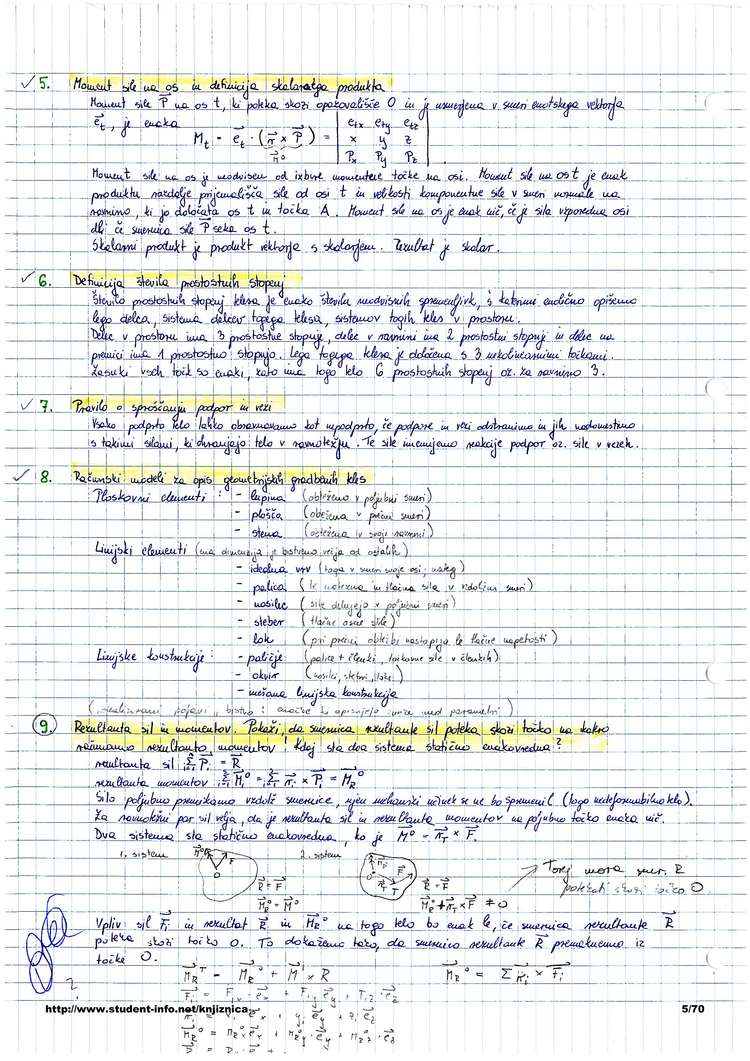 5. Moment sile na os in definicija skalarnega produkta
Moment sile P na os t, ki poteka skozi opazovališče O in je usmerjena v smeri enotskega vektorja
e_t, je enaka
M_t = e_t · (r × P) = | e_tx e_ty e_tz |
M^o | x y z |
| P_x P_y P_z |
Moment sile na os je neodvisen od izbire momentne točke na osi. Moment sile na os t je enak
produktu razdalje prijemališča sile od osi t in velikosti komponentne sile v smeri normale na
ravnino, ki jo določata os t in točka A. Moment sile na os je enak nič, če je sila vzporedna osi
ali če smernica sile P seka os t.
Skalarni produkt je produkt vektorja s skalarjem. Rezultat je skalar.
6. Definicija števila prostostnih stopenj
Število prostostnih stopenj telesa je enako številu neodvisnih spremenljivk, s katerimi enolično opišemo
lego delca, sistema delcev togega telesa, sistemov togih teles v prostoru.
Delec v prostoru ima 3 prostostne stopnje, delec v ravnini ima 2 prostostni stopnji in delec na
premici ima 1 prostostno stopnjo. Lega togega telesa je določena s 3 nekolinearnimi točkami.
Zasuki vseh točk so enaki, zato ima togo telo 6 prostostnih stopenj oz. za ravnino 3.
7. Pravilo o sproščanju podpor in vezi
Vsako podprto telo lahko obravnavamo kot nepodprto, če podpore in vezi odstranimo in jih nadomestimo
s takimi silami, ki ohranjajo telo v ravnotežju. Te sile imenujemo reakcije podpor oz. sile v vezeh.
8. Računski modeli za opis geometrijskih gradbenih teles
Ploskovni elementi: - lupina (obteženo v poljubni smeri)
- plošča (obtežena v prečni smeri)
- stena (obtežena v svoji ravnini)
Linijski elementi (ena dimenzija je bistveno večja od ostalih)
- idealna vrv (toga v smeri svoje osi; nateg)
- palica (le natezna in tlačna sila v vzdolžni smeri)
- nosilec (sile delujejo v poljubni smeri)
- steber (tlačne osne sile)
- lok (pri prečni obtežbi nastopijo le tlačne napetosti)
Linijske konstrukcije: - paličje (palice + členki, točkovne sile v členkih)
- okvir (nosilci, stebri, )
- mešana linijska konstrukcija
(idealizirani pojavi, bistvo: enačbe ki opisujejo zveze med parametri)
9. Rezultanta sil in momentov. Pokaži, da smernica rezultante sil poteka skozi točko na katero
računamo rezultanto momentov! Kdaj sta dva sistema statično enakovredna?
rezultanta sil Σ P_i = R
rezultanta momentov Σ M_i^o = Σ r_i × P_i = M_R^o
Silo poljubno premikamo vzdolž smernice, njen mehanski učinek se ne bo spremenil (togo nedeformabilno telo).
Za ravnotežni par sil velja, da je rezultanta sil in rezultanta momentov na poljubno točko enaka nič.
Dva sistema sta statično enakovredna, ko je M^o = r_T × F.
1. sistem 2. sistem
R = F R = F
M_R^o = M^o M_R^o + r_T × F ≠ 0
Torej mora smer. R
potekati skozi točko O
Vpliv sil F_i in rezultat R in M_R^o na togo telo bo enak le, če smernica rezultante R
poteka skozi točko O. To dokažemo tako, da smernico rezultante R premaknemo iz
točke O.
M_R^T = M_R^o + M × R M_R^o = Σ r_i × F_i
F_i = F_ix e_x + F_iy e_y + F_iz e_z
http://www.student-info.net/knjiznica 5/70
M_R^o = M_Rx^o e_x + M_Ry^o e_y + M_Rz^o e_z